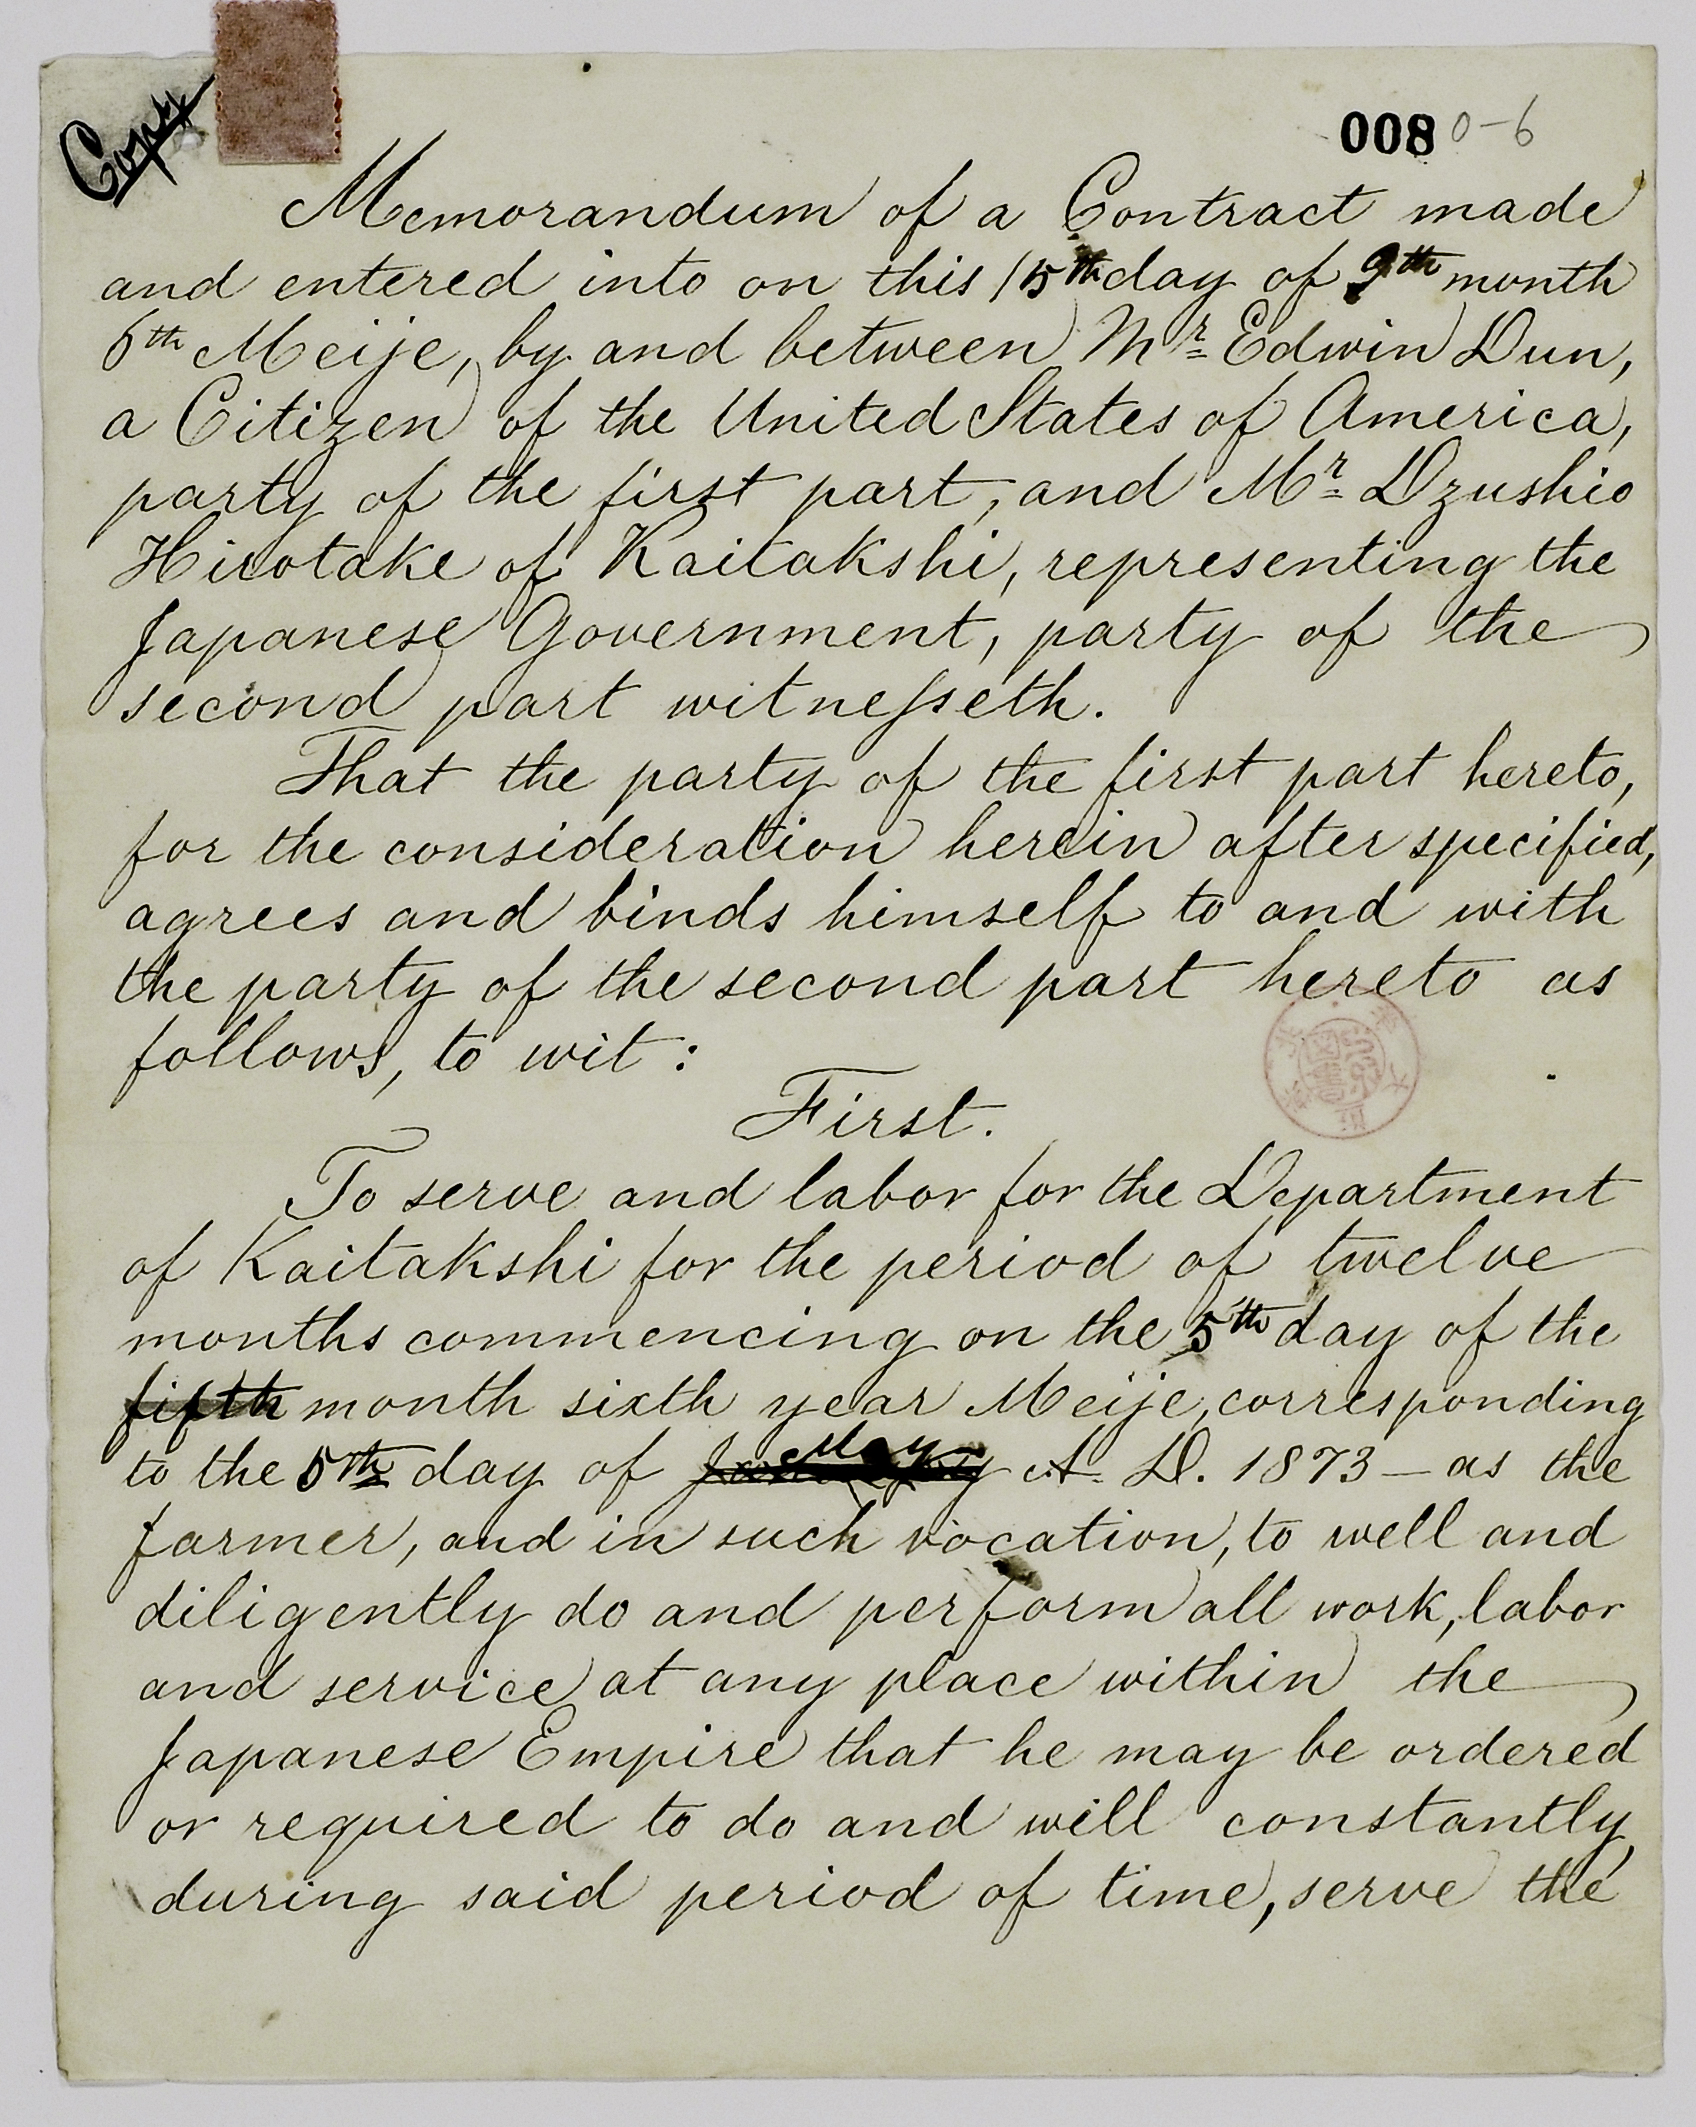 Copy
008 0-6
Memorandum of a Contract made
and entered into on this 15th day of 9th month
6th Meije, by and between Mr Edwin Dun,
a Citizen of the United States of America,
party of the first part, and Mr Dzushio
Hirotake of Kaitakshi, representing the
Japanese Government, party of the
second part witnesseth.
That the party of the first part hereto,
for the consideration herein after specified,
agrees and binds himself to and with
the party of the second part hereto as
follows, to wit:
First.
To serve and labor for the Department
of Kaitakshi for the period of twelve
months commencing on the 5th day of the
fifth month sixth year Meije, corresponding
to the 5th day of May A. D. 1873 — as the
farmer, and in such vocation, to well and
diligently do and perform all work, labor
and service at any place within the
Japanese Empire that he may be ordered
or required to do and will constantly,
during said period of time, serve the